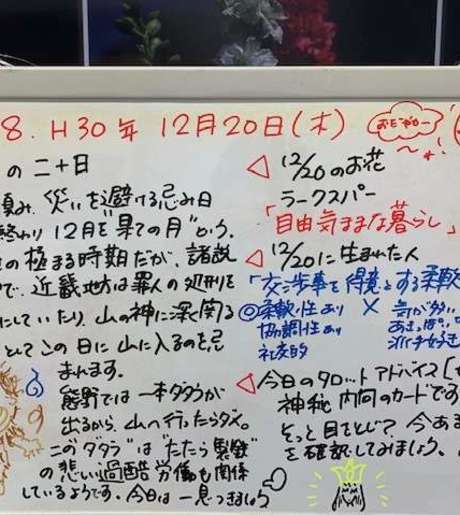 8. H30年 12月20日(木)
おだやかー
の二十日
慎み、災いを避ける忌み日
終わり12月を"果ての月"から、
の極まる時期だが、諸説
で、近畿地方は罪人の処刑を
にしていたり、山の神に深く関る
としてこの日に山に入るのを忌
まれます。
熊野では一本ダタラが
出るから、山へ行ったらダメ。
この"ダタラ"は"たたら製鉄"
の悲しい過酷労働も関係
しているようです。今日は一見つきましょう
◁ 12/20のお花
ラークスパー
「自由気ままな暮らし」
◁ 12/20に生まれた人
「交渉事を得意とする柔軟
◎柔軟性あり
協調性あり
社交的
×
気が多い
あきっぽい
派手好き
◁ 今日のタロットアドバイス
神秘 内向のカードです
そっと目をとじて 今あま
を確認してみましょう。